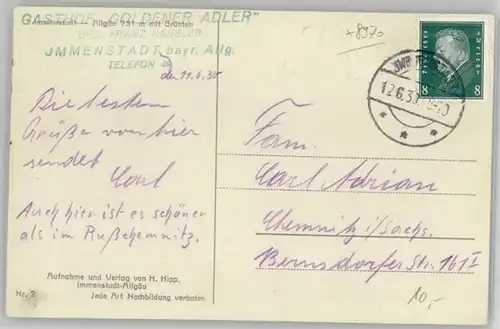 GASTHOF "GOLDENER ADLER"
Immenstadt — Allgäu 731 m mit Grünten
BES. FRANZ HÄUSLER
IMMENSTADT bayr. Allg.
TELEFON
den 11.6.30
Die besten
Grüße von hier
sendet
Carl
Auch hier ist es schöner
als im Rußchemnitz.
Aufnahme und Verlag von H. Hipp,
Immenstadt-Allgäu
Nr. 2 Jede Art Nachbildung verboten
+8970
Deutsches Reich
8 8
12.6.30
Fam.
Carl Adrian
Chemnitz i/Sachs.
Bernsdorfer Str. 161 I
10,-